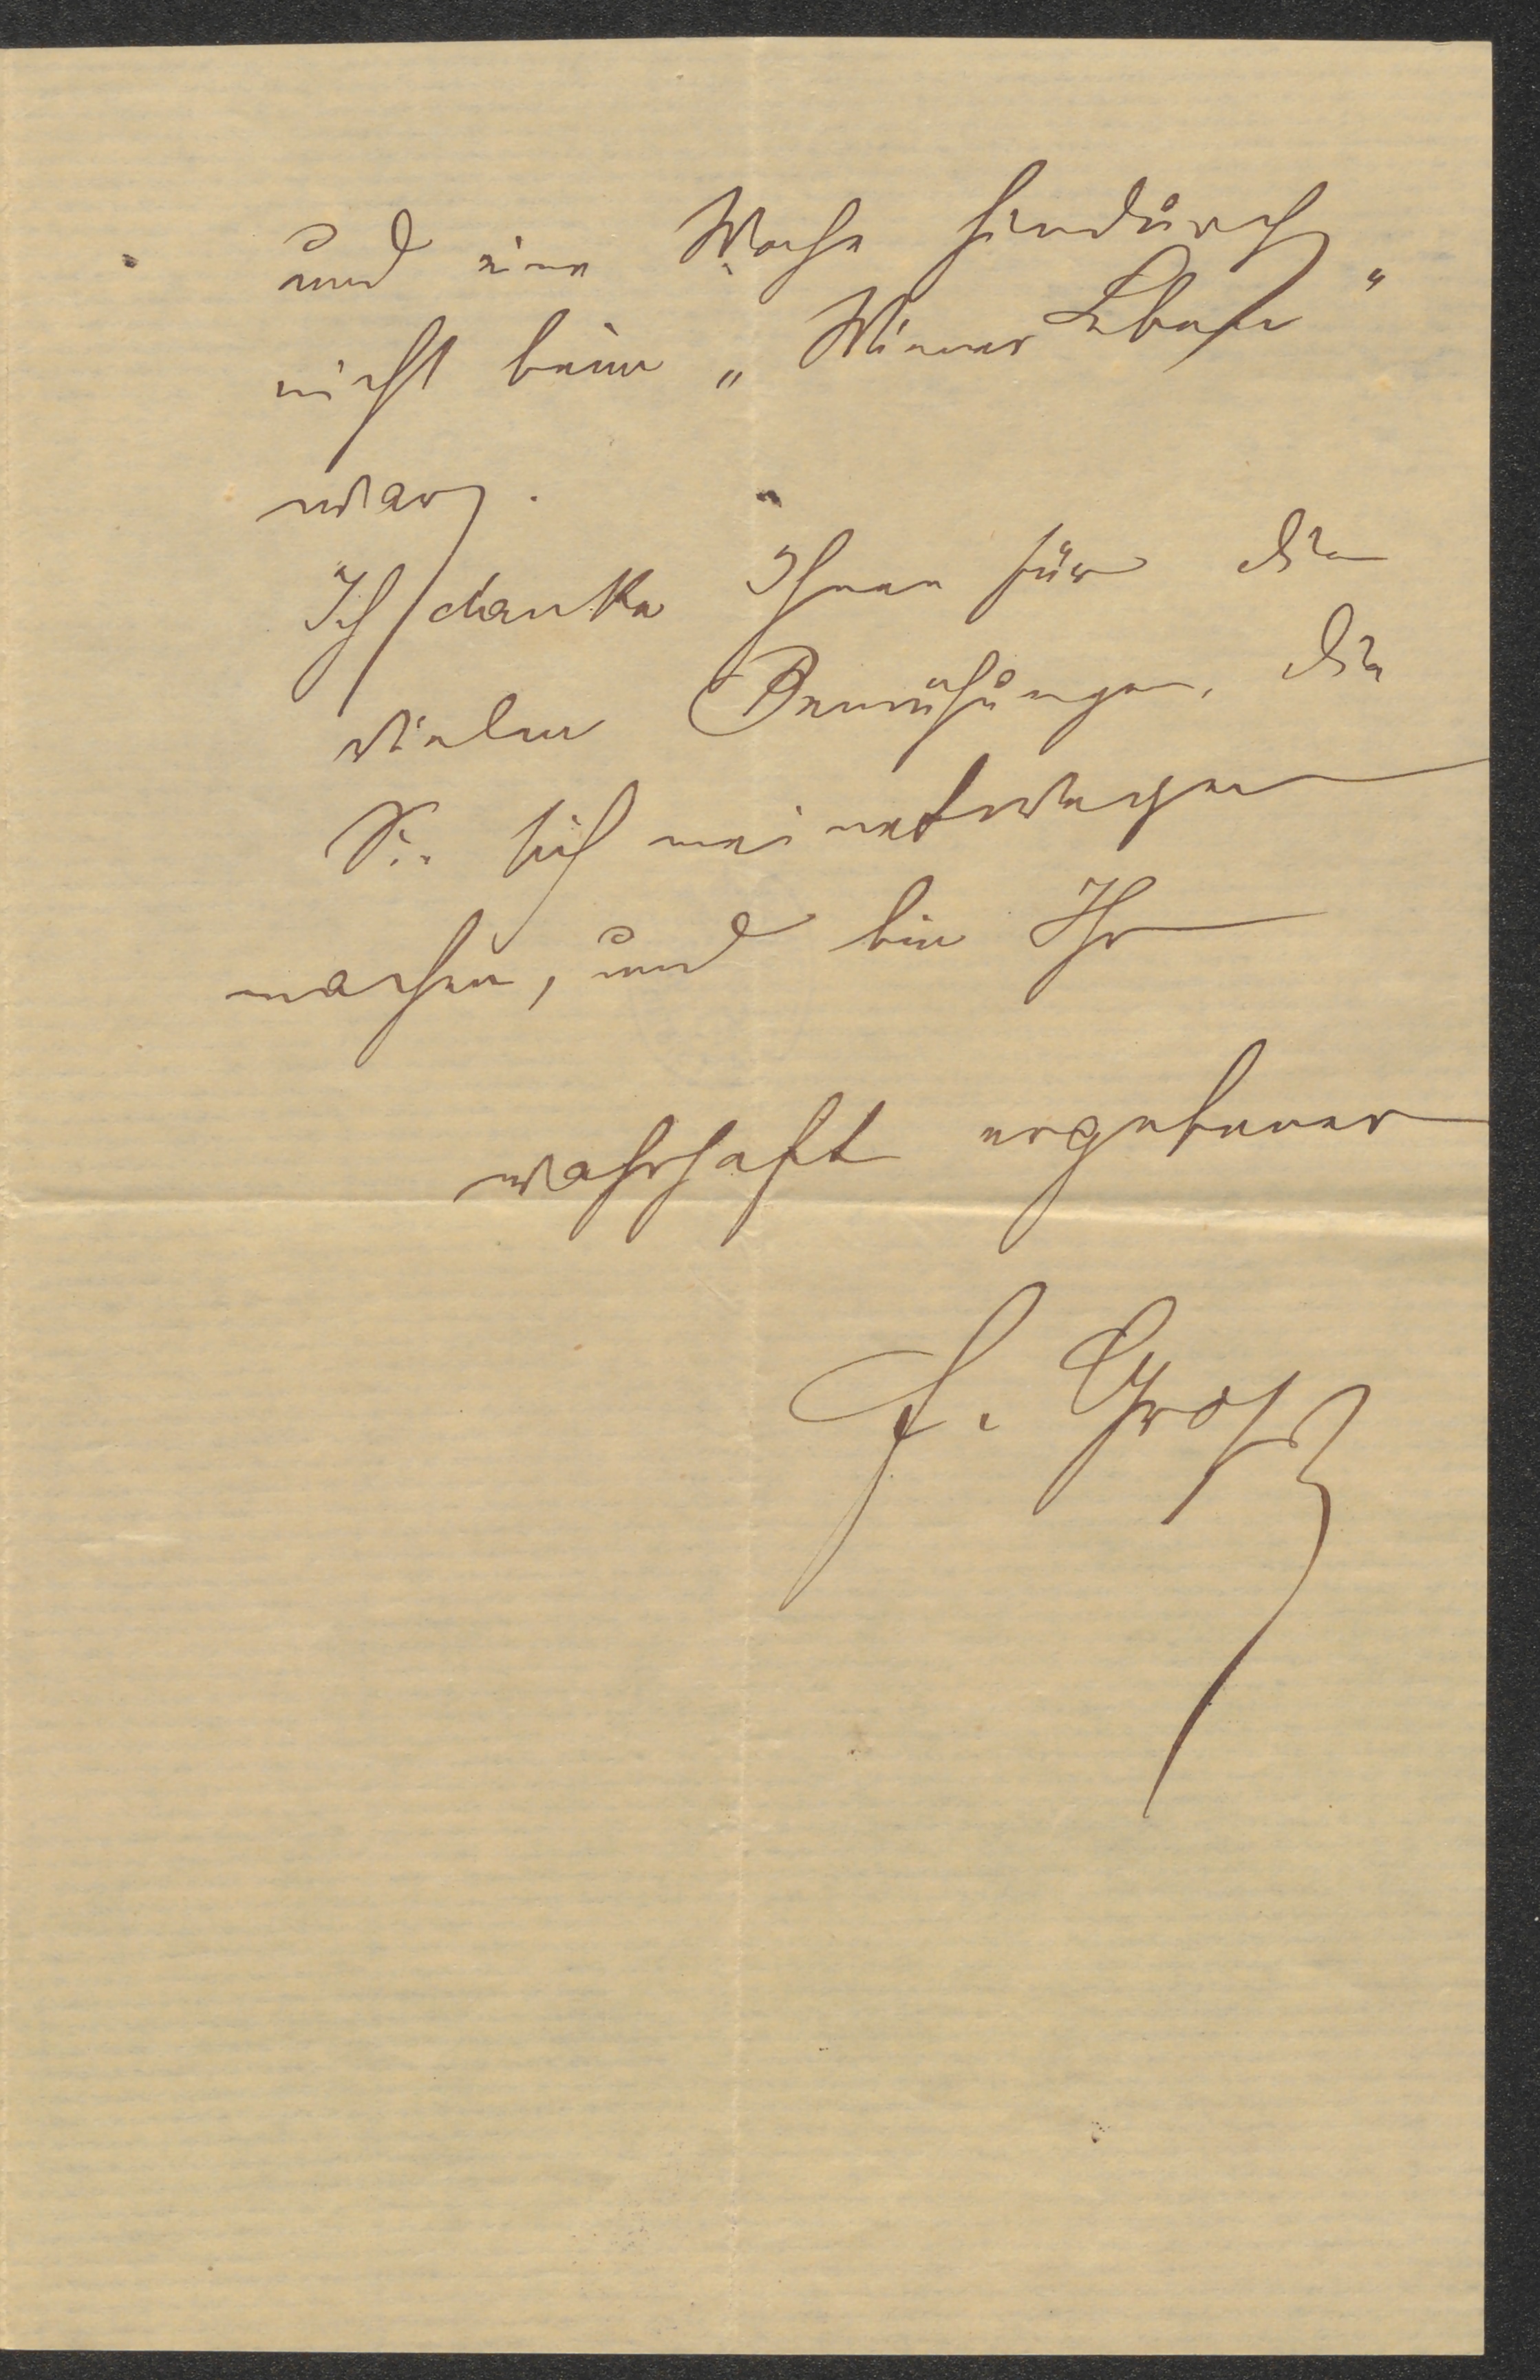 und eine Woche hindurch
nicht beim „Wiener Leben“
war.
Ich danke Ihnen für die
vielen Bemühungen, die
Sie sich meinetwegen
machen, und bin Ihr
wahrhaft ergebener
F. Groß